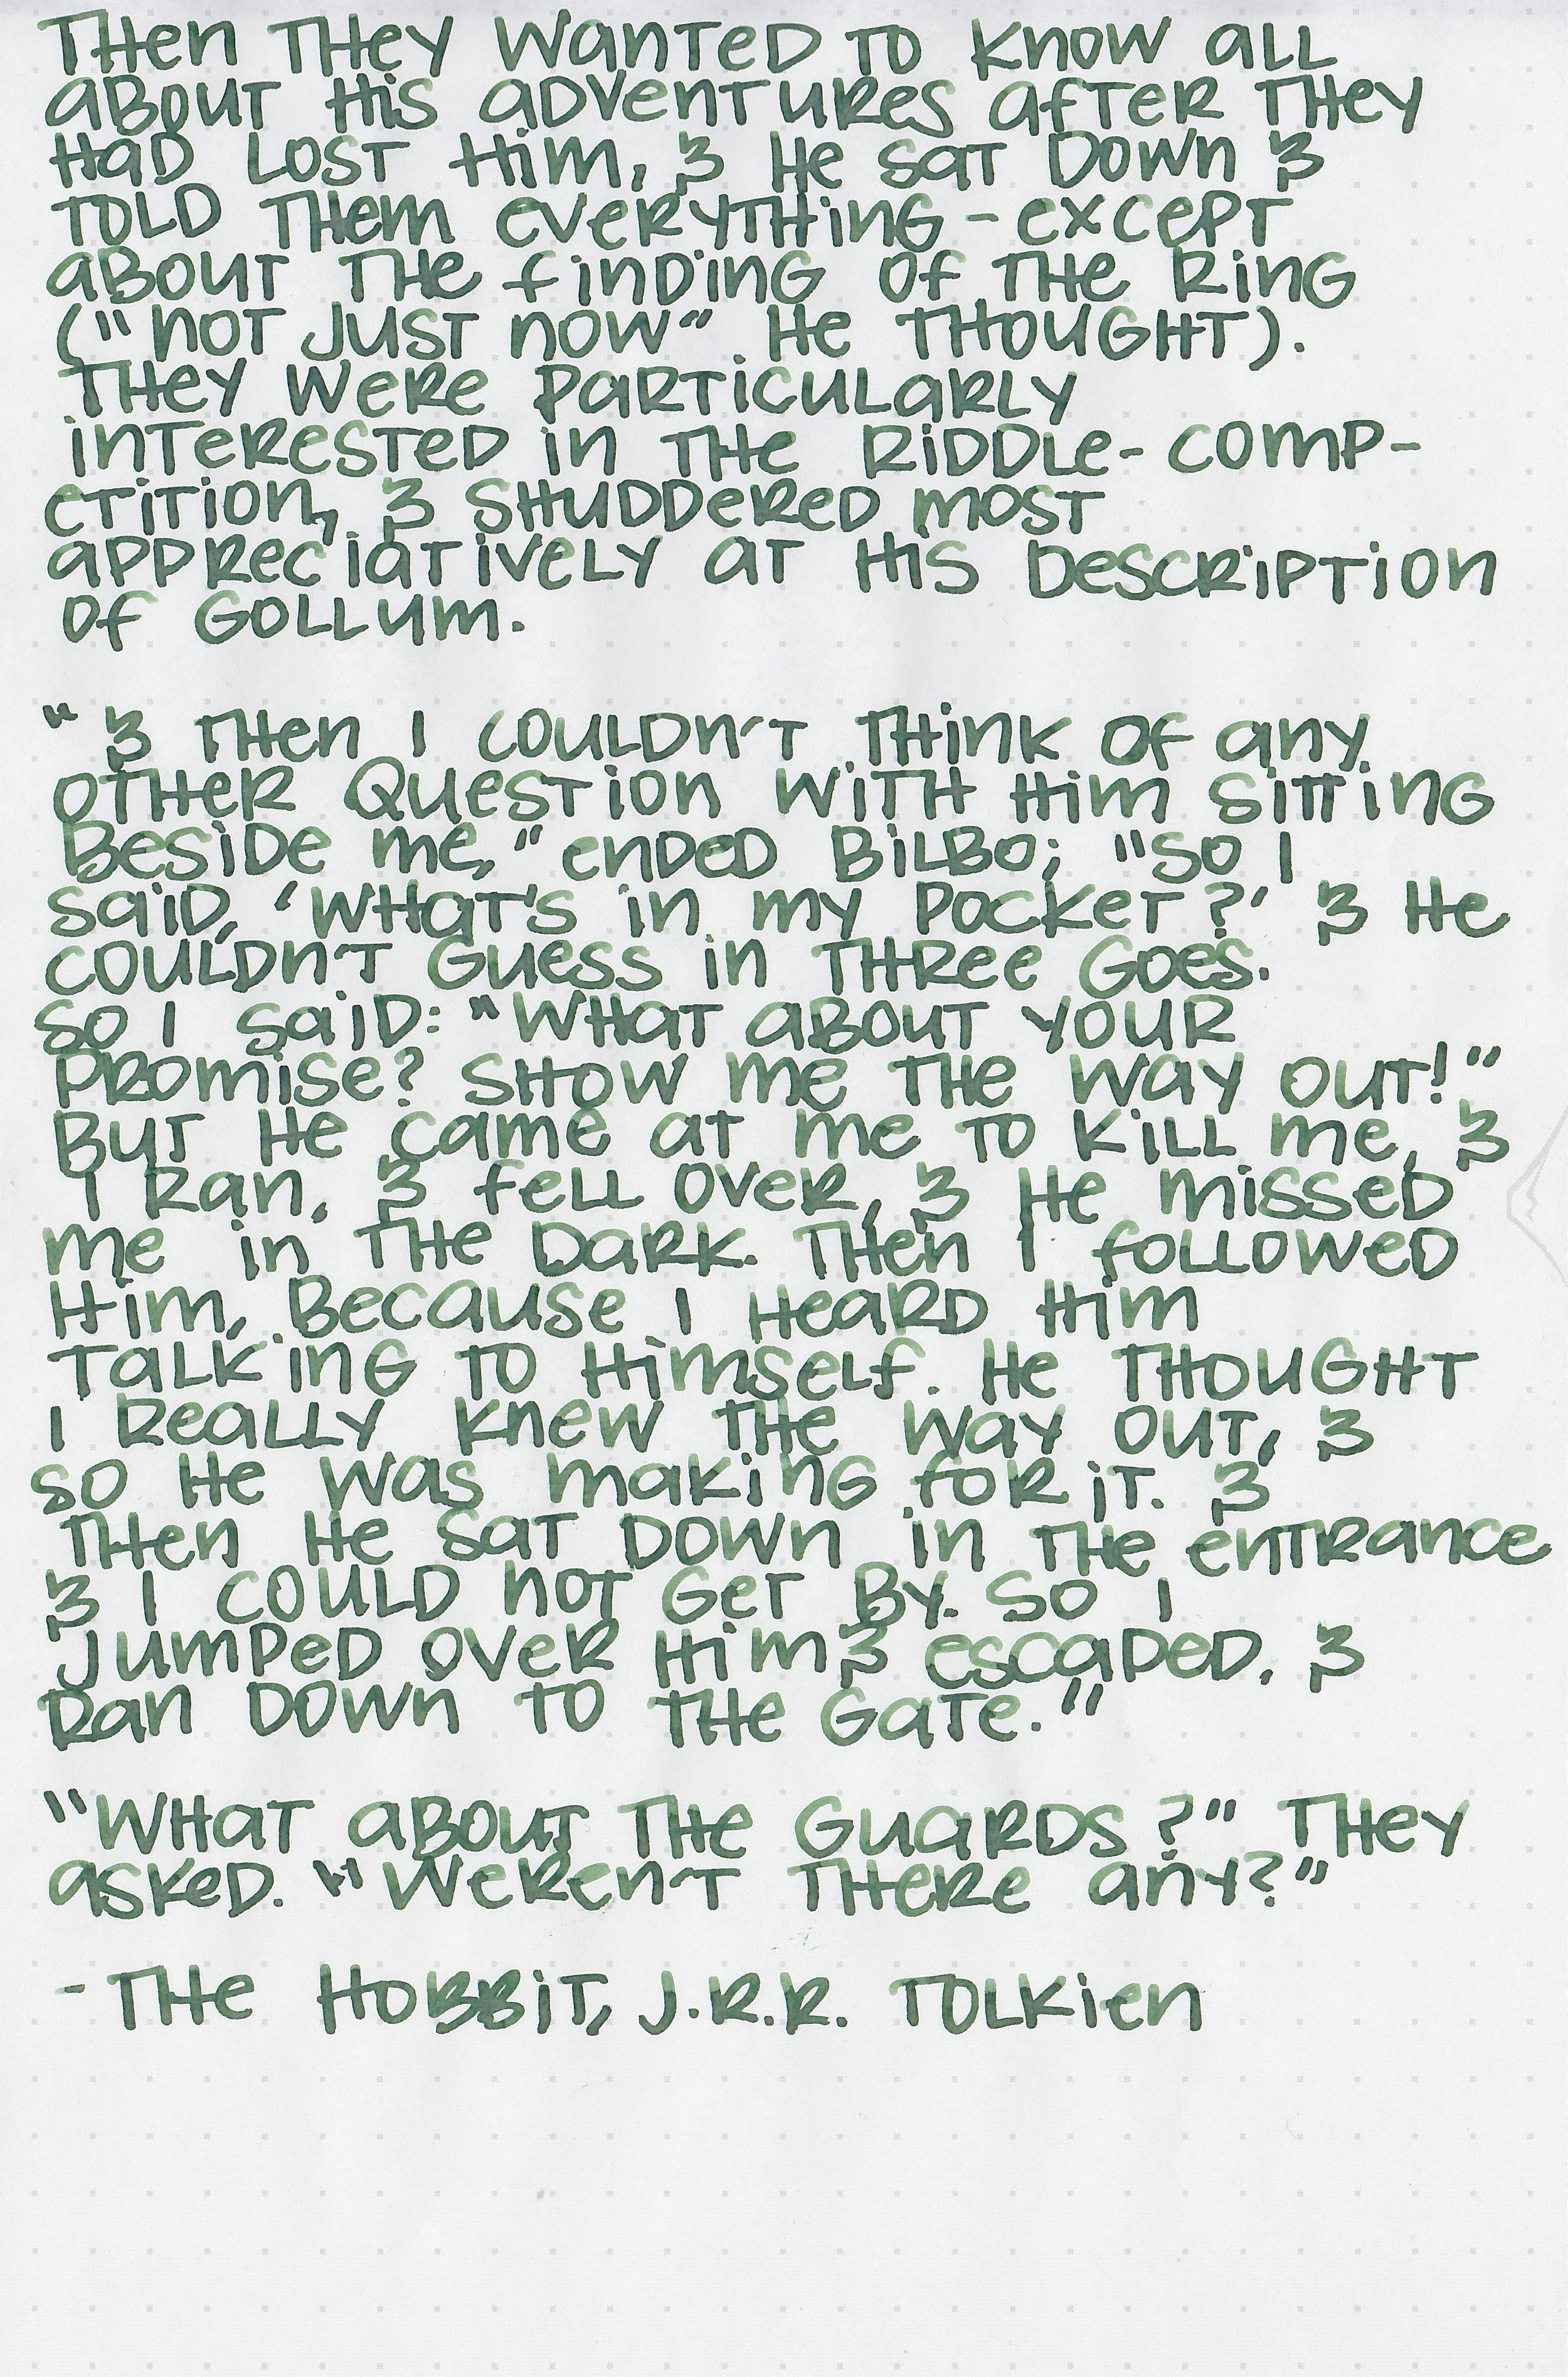 Then they wanted to know all
about his adventures after they
had lost him, & he sat down &
told them everything - except
about the finding of the ring
("not just now" he thought).
They were particularly
interested in the riddle-comp-
etition, & shuddered most
appreciatively at his description
of Gollum.
"& then I couldn't think of any
other question with him sitting
beside me," ended Bilbo; "so I
said, 'What's in my pocket?' & he
couldn't guess in three goes.
So I said: "What about your
promise? Show me the way out!"
But he came at me to kill me, &
I ran, & fell over, & he missed
me in the dark. Then I followed
him, because I heard him
talking to himself. He thought
I really knew the way out, &
so he was making for it. &
then he sat down in the entrance
& I could not get by. So I
jumped over him & escaped, &
ran down to the gate."
"What about the guards?" They
asked. "Weren't there any?"
- The Hobbit, J.R.R. Tolkien